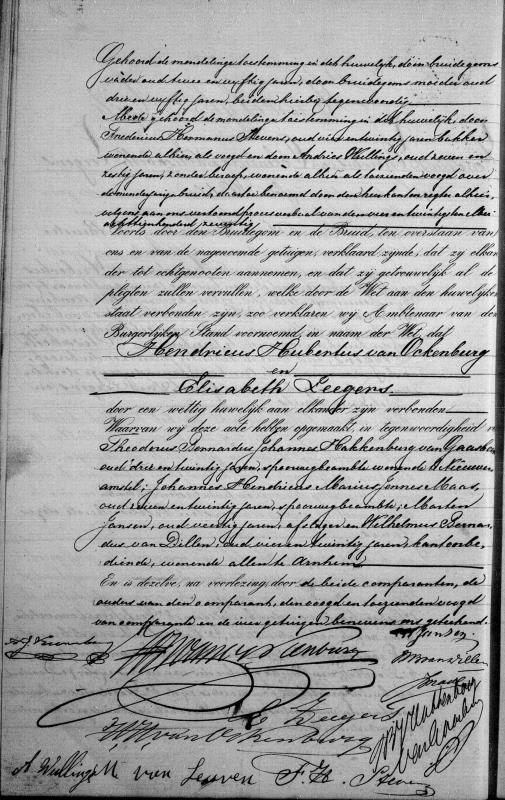 Gehoord de mondelinge toestemming in dit huwelijk, door bruidegoms
vader oud twee en vijftig jaren, door bruidegoms moeder oud
drie en vijftig jaren, beiden hierbij tegenwoordig
Mede gehoord de mondelinge toestemming in dit huwelijk, door
Fredericus Hermanus Stevens, oud vier en twintig jaren, bakker
wonende alhier, als voogd en door Andries Wullings, oud zeven en
zestig jaren, zonder beroep, wonende alhier als toeziende voogd over
de minderjarige bruid, daartoe benoemd door den heer kantonregter alhier,
volgens aan ons vertoond procesverbaal van den vier en twintigsten Mei
achttienhonderd zeventig
Voorts door den Bruidegom en de Bruid, ten overstaan van
ons en van de nagenoemde getuigen, verklaard zijnde, dat zij elkan
der tot echtgenooten aannemen, en dat zij getrouwelijk al de
pligten zullen vervullen, welke door de Wet aan den huwelijken
staat verbonden zijn, zoo verklaren wij Ambtenaar van den
Burgerlijken Stand voornoemd, in naam der Wet, dat
Hendricus Hubertus van Ockenburg
en
Elisabeth Zeegers
door een wettig huwelijk aan elkander zijn verbonden
Waarvan wij deze acte hebben opgemaakt, in tegenwoordigheid van
Theodorus Bernardus Johannes Hakkenburg van Gaasbeek
oud drie en twintig jaren, spoorwegbeambte wonende te Nieuwer
amstel; Johannes Hendricus Marius Maas,
oud zeven en twintig jaren, spoorwegbeambte; Marten
Jansen, oud veertig jaren, en Wilhelmus Bernar
dus van Dillen, oud vier en twintig jaren, kantoorbe
diende, wonende allen te Arnhem
En is dezelve, na voorlezing, door de beide comparanten, de
ouders van den comparant, den voogd en toezienden voogd
van comparante en de vier getuigen benevens ons geteekend.
M Jansen
van Ockenburg
van Dillen
Maas
E Zeegers
H. H. van Ockenburg
A. Wullings M. van Leuven F. H. Stevens